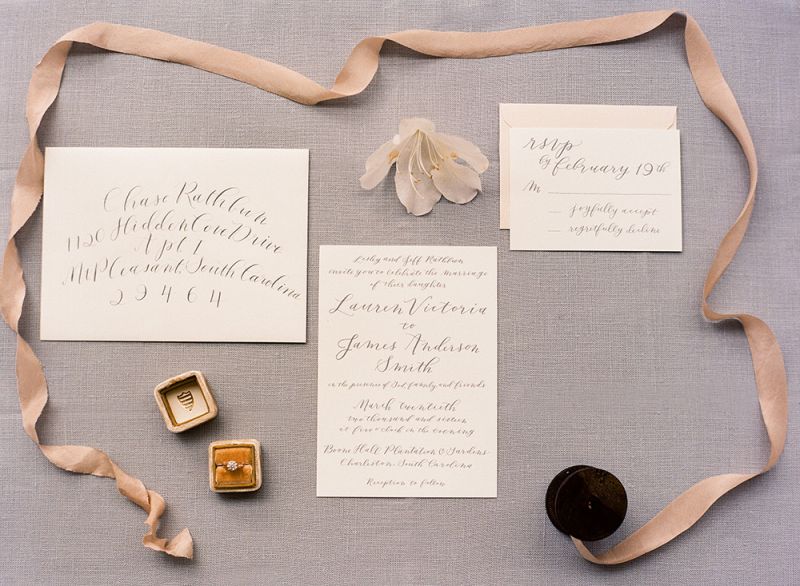 Chase Rathbun
1120 Hidden Cove Drive
Apt 1
Mt Pleasant, South Carolina
29464
rsvp
by february 19th
M
joyfully accept
regretfully decline
Lesley and Jeff Rathbun
invite you to celebrate the marriage
of their daughter
Lauren Victoria
to
James Anderson
Smith
in the presence of God, family and friends
March twentieth
two thousand and sixteen
at five o'clock in the evening
Boone Hall Plantation & Gardens
Charleston, South Carolina
Reception to follow